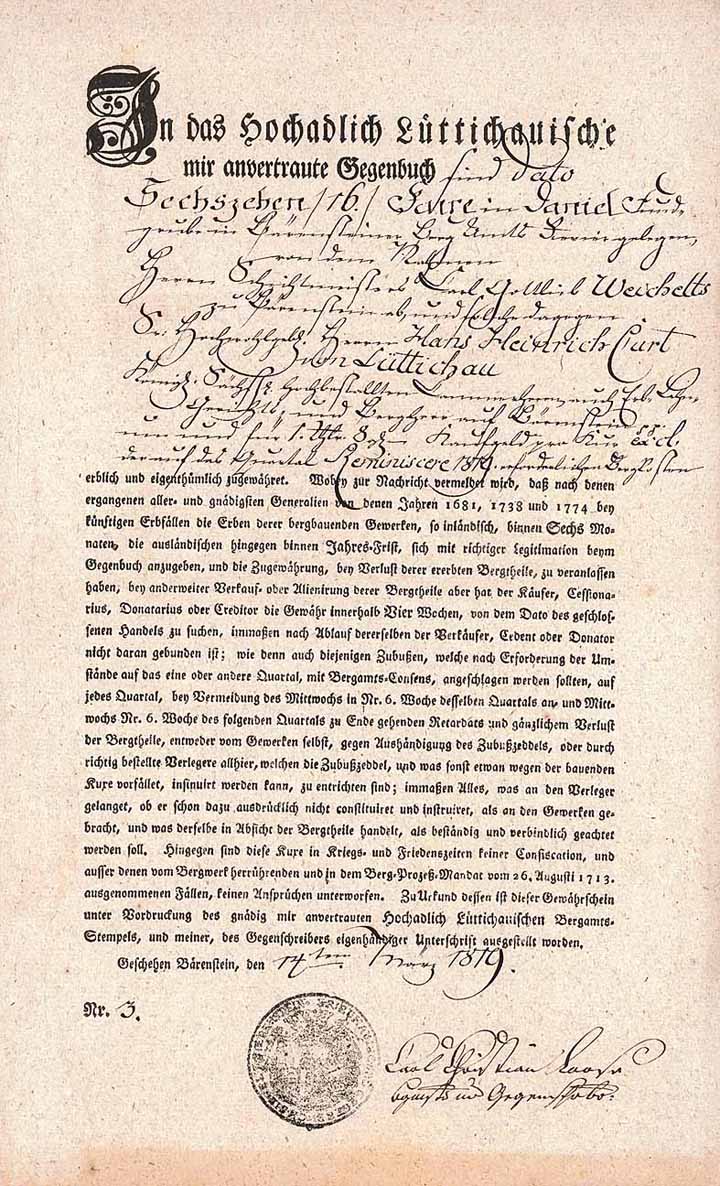 In das Hochadlich Lüttichauische
mir anvertraute Gegenbuch sind dato
Sechszehen /16./ Kuxe in Daniel Fund-
grube in Bärensteiner Berg Amts Revier gelegen,
von dem Nahmen
Herrn Schichtmeisters Carl Gottlieb Weichelts
zu Bärenstein ab, und solche dagegen
Sr. Hochwohlgeb. Herrn Hans Heinrich Curt
von Lüttichau
Königl. Sächß. hochbestallten Cammerherrn, auch Erb- Lehn-
Gerichts- und Bergherr auf Bärenstein
um und für 1. Kaufgeld pro Kux excl.
der auf das Quartal Reminiscere 1819. erforderlichen Berg Kosten
erblich und eigenthümlich zugewähret. Wobey zur Nachricht vermeldet wird, daß nach denen
ergangenen aller- und gnädigsten Generalien von denen Jahren 1681, 1738 und 1774 bey
künftigen Erbfällen die Erben derer bergbauenden Gewerken, so inländisch, binnen Sechs Mo-
naten, die ausländischen hingegen binnen Jahres-Frist, sich mit richtiger Legitimation beym
Gegenbuch anzugeben, und die Zugewährung, bey Verlust derer ererbten Bergtheile, zu veranlassen
haben, bey anderweiter Verkauf- oder Alienirung derer Bergtheile aber hat der Käufer, Cessiona-
rius, Donatarius oder Creditor die Gewähr innerhalb Vier Wochen, von dem Dato des geschlos-
senen Handels zu suchen, immaßen nach Ablauf dererselben der Verkäufer, Cedent oder Donator
nicht daran gebunden ist; wie denn auch diejenigen Zubußen, welche nach Erforderung der Um-
stände auf das eine oder andere Quartal, mit Bergamts-Consens, angeschlagen werden sollten, auf
jedes Quartal, bey Vermeidung des Mittwochs in Nr. 6. Woche desselben Quartals an- und Mitt-
wochs Nr. 6. Woche des folgenden Quartals zu Ende gehenden Retardats und gänzlichem Verlust
der Bergtheile, entweder vom Gewerken selbst, gegen Aushändigung des Zubußzeddels, oder durch
richtig bestellte Verlegere allhier, welchen die Zubußzeddel, und was sonst etwan wegen der bauenden
Kuxe vorfället, insinuirt werden kann, zu entrichten sind; immaßen Alles, was an den Verleger
gelanget, ob er schon dazu ausdrücklich nicht constituiret und instruiret, als an den Gewerken ge-
bracht, und was derselbe in Absicht der Bergtheile handelt, als beständig und verbindlich geachtet
werden soll. Hingegen sind diese Kuxe in Kriegs- und Friedenszeiten keiner Confiscation, und
ausser denen vom Bergwerk herrührenden und in dem Berg-Prozeß-Mandat vom 26. Augusti 1713.
ausgenommenen Fällen, keinen Ansprüchen unterworfen. Zu Urkund dessen ist dieser Gewährschein
unter Vordruckung des gnädig mir anvertrauten Hochadlich Lüttichauischen Bergamts-
Stempels, und meiner, des Gegenschreibers eigenhändiger Unterschrift ausgestellt worden.
Geschehen Bärenstein, den 14ten März 1819.
Nr. 3.
Carl Christian